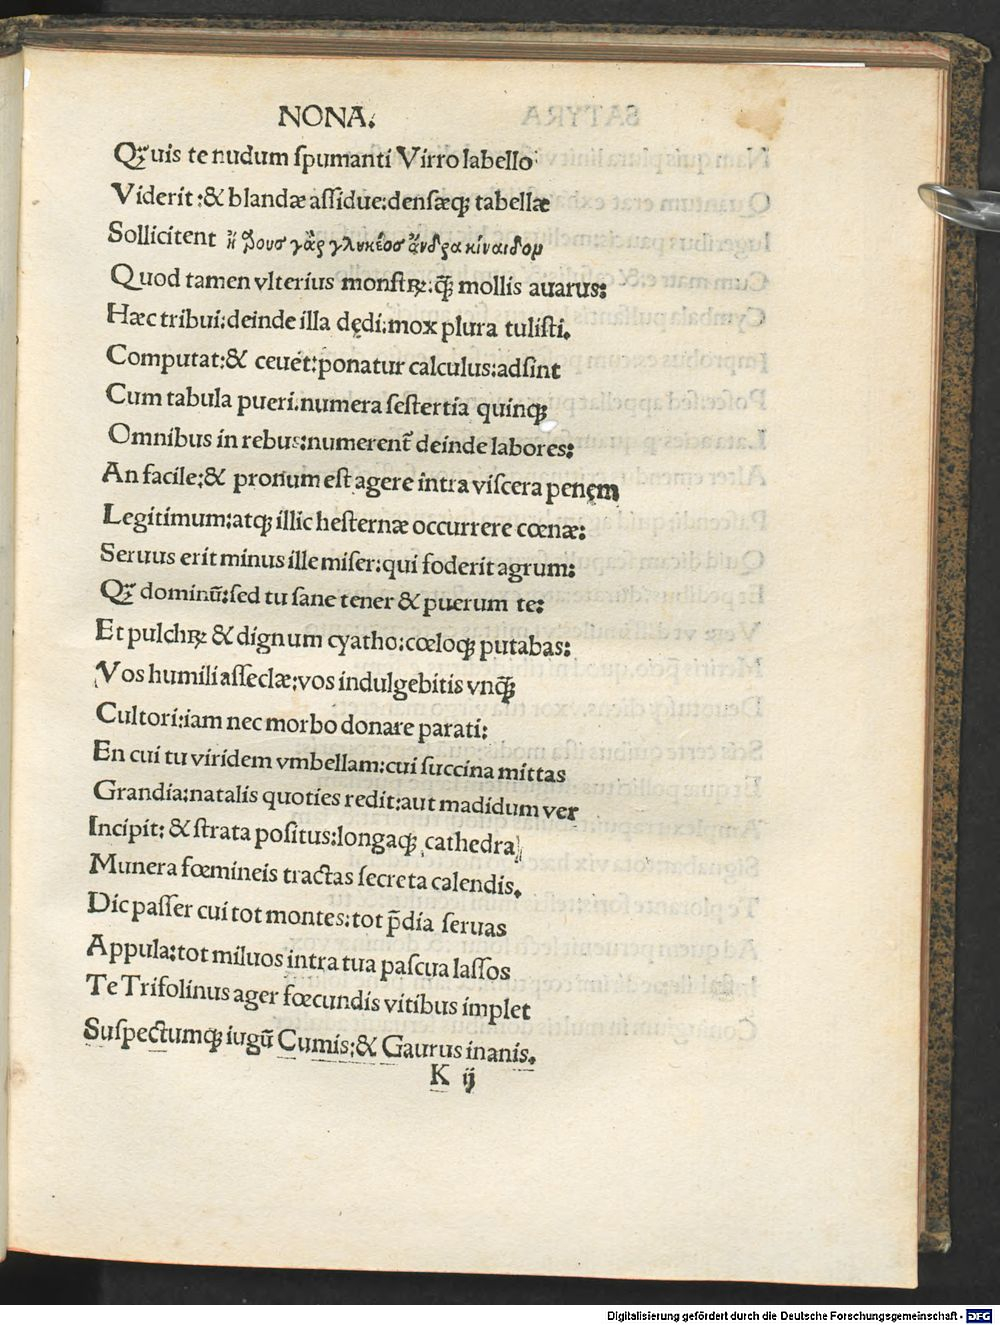 NONA.
Qꝫuis te nudum spumanti Virro labello
Viderit:& blandæ assidue:densæqꝫ tabellæ
Sollicitent ἤ βουσ γὰρ γλυκέοσ ἄνδρα κίναιδομ
Quod tamen vlterius monstrꝝ:qꝫ̄ mollis auarus:
Hæc tribui:deinde illa dędi:mox plura tulisti.
Computat:& ceuet:ponatur calculus:adsint
Cum tabula pueri.numera sestertia quinqꝫ
Omnibus in rebus:numerent̄ deinde labores:
An facile:& pronum est agere intra viscera penęm
Legitimum:atqꝫ illic hesternæ occurrere cœnæ:
Seruus erit minus ille miser:qui foderit agrum:
Qꝫ dominū:sed tu sane tener & puerum te:
Et pulchꝝ & dignum cyatho:cœloqꝫ putabas:
Vos humili asseclæ:vos indulgebitis vnqꝫ̄
Cultori:iam nec morbo donare parati:
En cui tu viridem vmbellam:cui succina mittas
Grandia:natalis quoties redit:aut madidum ver
Incipit: & strata positus:longaqꝫ cathedra
Munera fœmineis tractas secreta calendis.
Dic passer cui tot montes:tot p̄dia seruas
Appula:tot miluos intra tua pascua lassos
Te Trifolinus ager fœcundis vitibus implet
Suspectumqꝫ iugū Cumis:& Gaurus inanis.
K ij
Digitalisierung gefördert durch die Deutsche Forschungsgemeinschaft - DFG